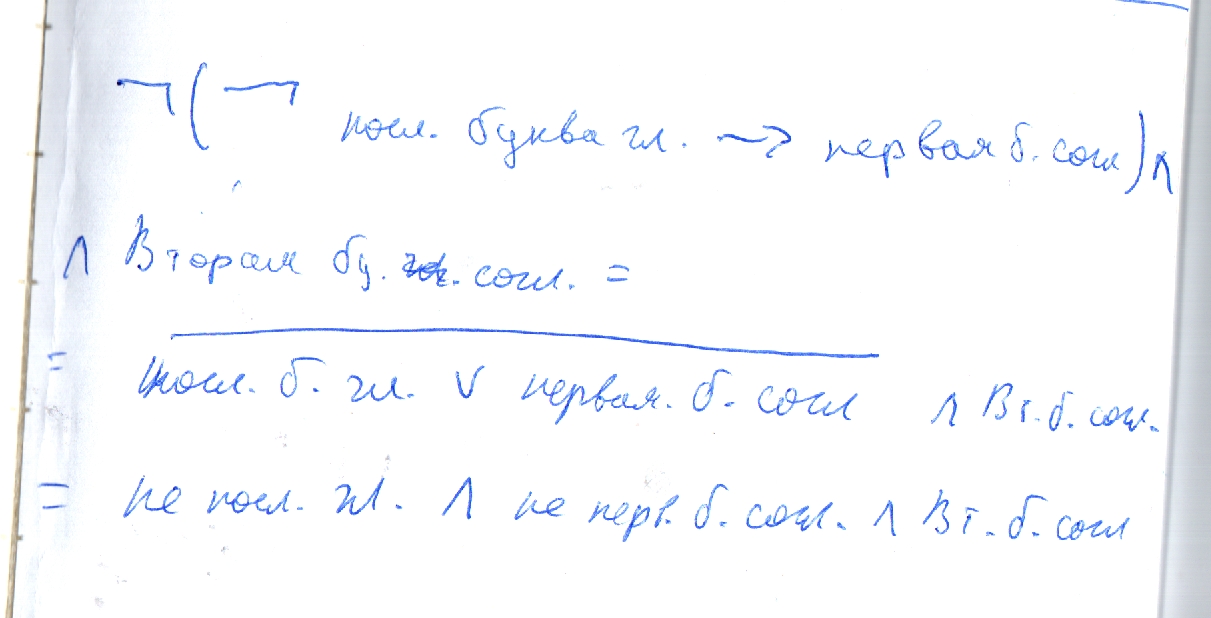 ¬(¬ посл. буква гл. → первая б. согл) ∧
∧ Вторая бу. согл. =
= посл. б. гл. ∨ первая. б. согл ∧ Вт. б. согл.
= не посл. гл. ∧ не перв. б. согл. ∧ Вт. б. согл